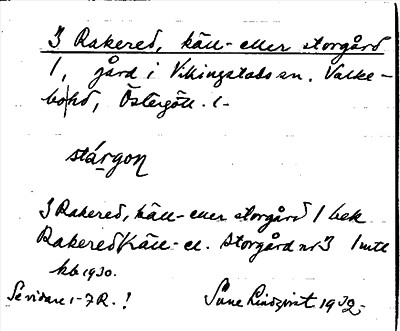 3 Rakered, käll- eller storgård
1, gård i Vikingstads sn. Valke-
bo hd, Östergötl. l-
stárgon
3 Rakered, käll- eller storgård 1 bek
Rakered Käll- el. Storgård nr 3 1 mtl
kb 1930.
Se vidare 1-7 R.!
Sune Lindqvist 1932.